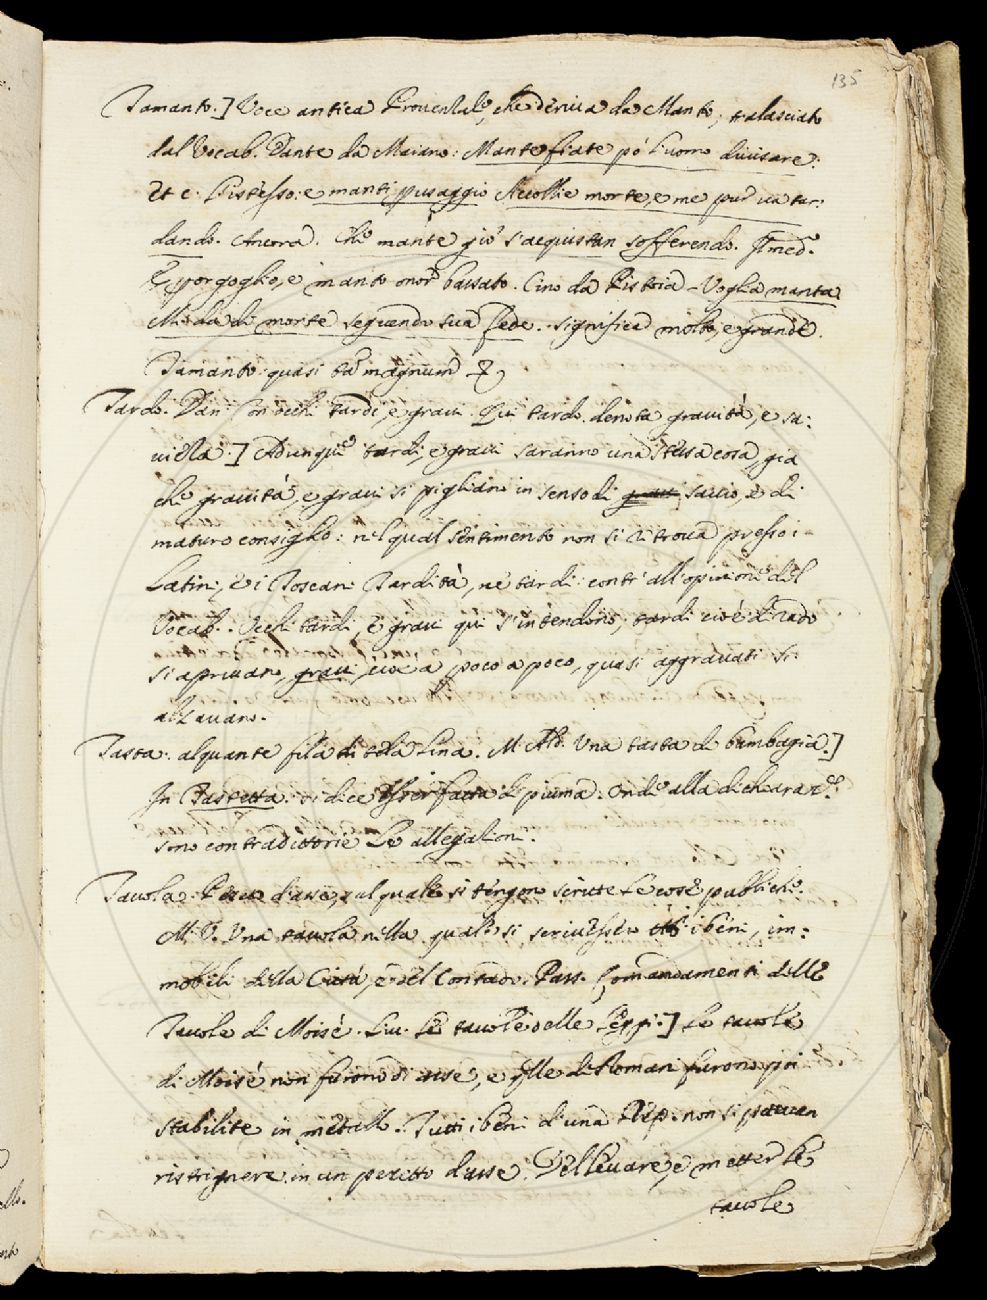 135
Tamanto.] Voce antica Provenzale, che deriva da Manto, tralasciato
dal Vocab. Dante da Maiano: Mante fiate pò l'uomo divisare.
Et e. L'istesso: e manti, pusaggio Accollie morte, e me pur va tar-
dando. Ancora. Che mante gio' s'acquistan sofferendo.
E porgoglio, e manto onor bassato. Cino da Pistoia - Voglia manta
Mi dà di morte seguendo sua fede. significa molto, e grande.
Tamanto: quasi tam magnum
Tardo. Dan. Con occhi tardi, e gravi. Qui tardo denota gravità, e sa:
viezza.] Adunque tardi, e gravi saranno una stessa cosa, gia
che gravità, e gravi si pigliano in senso di gravi savio, e di
maturo consiglio: nel qual sentimento non si ritrova presso i
Latini, e i Toscani Tardità, ne tardi: contr'all'opinione del
Vocab. Occhi tardi, e gravi qui s'intendono; tardi cioè di rado
si aprivano, gravi, cioè a poco a poco, quasi aggravati si
alzavano.
Tasta. alquante fila di tela lina. M. Ald. Una tasta di bambagia.]
In Tastetta. si dice esser fatta di piuma. Onde alla dichiaraz.e
sono contradittorie le allegationi.
Tavola. Pezzo d'asse, sul quale si tengon scritte le cose publiche.
M. V. Una tavola nella quale si scrivessero tti i beni, im:
mobili della Città, e del Contado. Pass. Comandamenti delle
Tavole di Moisè. Liv. Le tavole delle leggi.] Le tavole
di Moisè non furono di asse, e q̃lle de Romani furono poi
stabilite in metallo. Tutti i beni d'una Rep. non si potean
ristrignere in un pezzetto d'asse. Del levare, e metter le
tavole